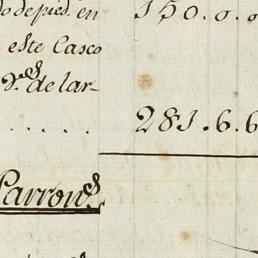 do de pied. en 150.0.0
este Casco
V.s de lar-
..... 281.6.6
Parron.s